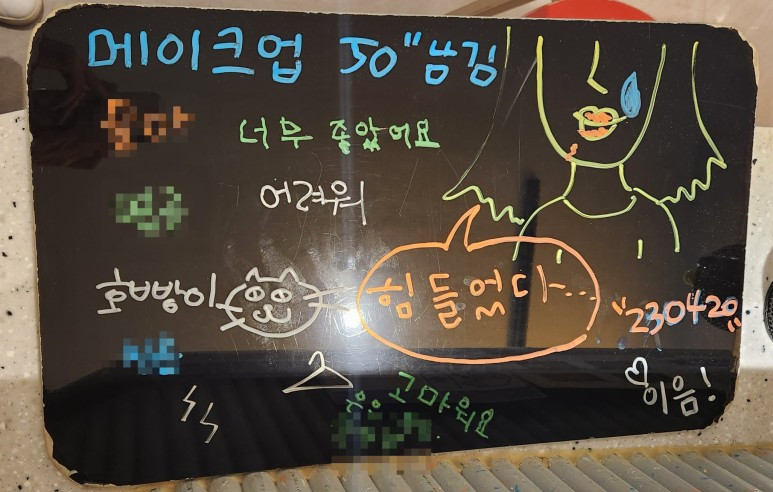 메이크업 50" 남김
너무 좋았어요
어려워
호빵이
힘들었다...
"230420"
고마워요
♡ 이음!